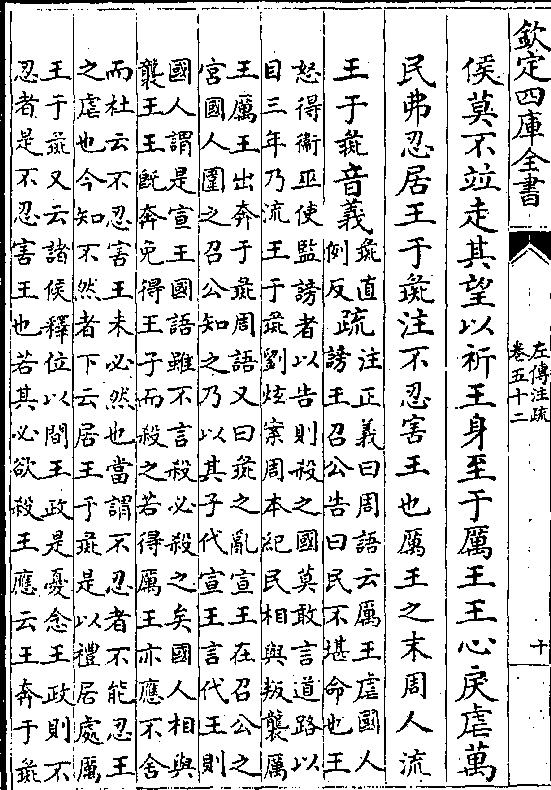 欽定四庫全書
左傳注疏
卷五十二
十
侯莫不竝走其望以祈王身至于厲王王心戾虐萬
民弗忍居王于彘注不忍害王也厲王之末周人流
王于彘音義
彘直
例反
疏
注正義曰周語云厲王虐國人
謗王召公告曰民不堪命也王
怒得衛巫使監謗者以告則殺之國莫敢言道路以
目三年乃流王于彘劉炫案周本紀民相與叛襲厲
王厲王出奔于彘周語又曰彘之亂宣王在召公之
宮國人圍之召公知之乃以其子代宣王言代王則
國人謂是宣王國語雖不言殺必殺之矣國人相與
襲王王既奔免得王子而殺之若得厲王亦應不舍
而杜云不忍害王未必然也當謂不忍者不能忍王
之虐也今知不然者下云居王于彘是以禮居處厲
王于彘又云諸侯釋位以間王政是憂念王政則不
忍者是不忍害王也若其必欲殺王應云王奔于彘